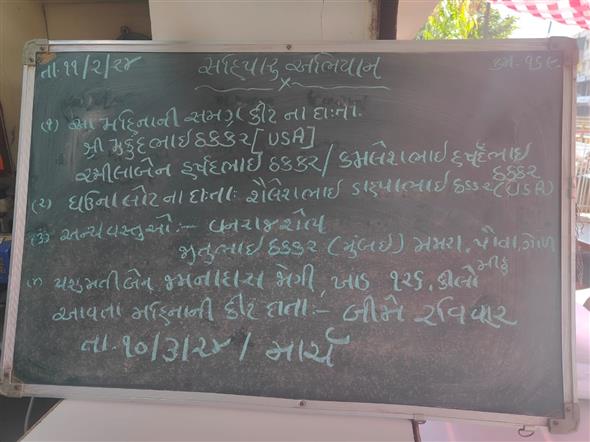 તા.૧૧/૨/૨૪ સહિયારુ અભિયાન ક્રમ.૧૬૯
(૧) આ મહિનાની સમગ્ર કીટ ના દાતા.
શ્રી મુકુંદભાઇ ઠકકર [USA]
રમીલાબેન હર્ષદભાઇ ઠકકર / કમલેશભાઇ હર્ષદભાઇ ઠકકર
(૨) ઘઉંના લોટ ના દાતાઃ શૈલેશભાઇ ડાહ્યાભાઇ ઠકકર (USA)
(૩) અન્ય વસ્તુઓ:-
જીતુભાઇ ઠકકર (મુંબઇ) મમરા, પૌવા, ગોળ
મીઠુ
(૪) યશુમતીબેન જમનાદાસ મેગી, ખાંડ ૧૨૬.કીલો
આવતા મહિનાની કીટ દાતા:- બીજો રવિવાર
તા.૧૦/૩/૨૪ / માર્ચ